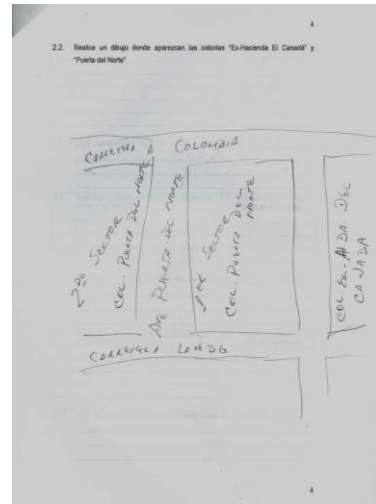 4
2.2. Realice un dibujo donde aparezcan las colonias "Ex-Hacienda El Canadá" y
"Puerta del Norte"
CARRETERA A COLOMBIA
2DO SECTOR
COL. PUERTA DEL NORTE
AVE PUERTA DEL NORTE
1ER SECTOR
COL. PUERTA DEL
NORTE
COL. EX-HDA. DEL
CANADA
CARRETERA LAREDO
4